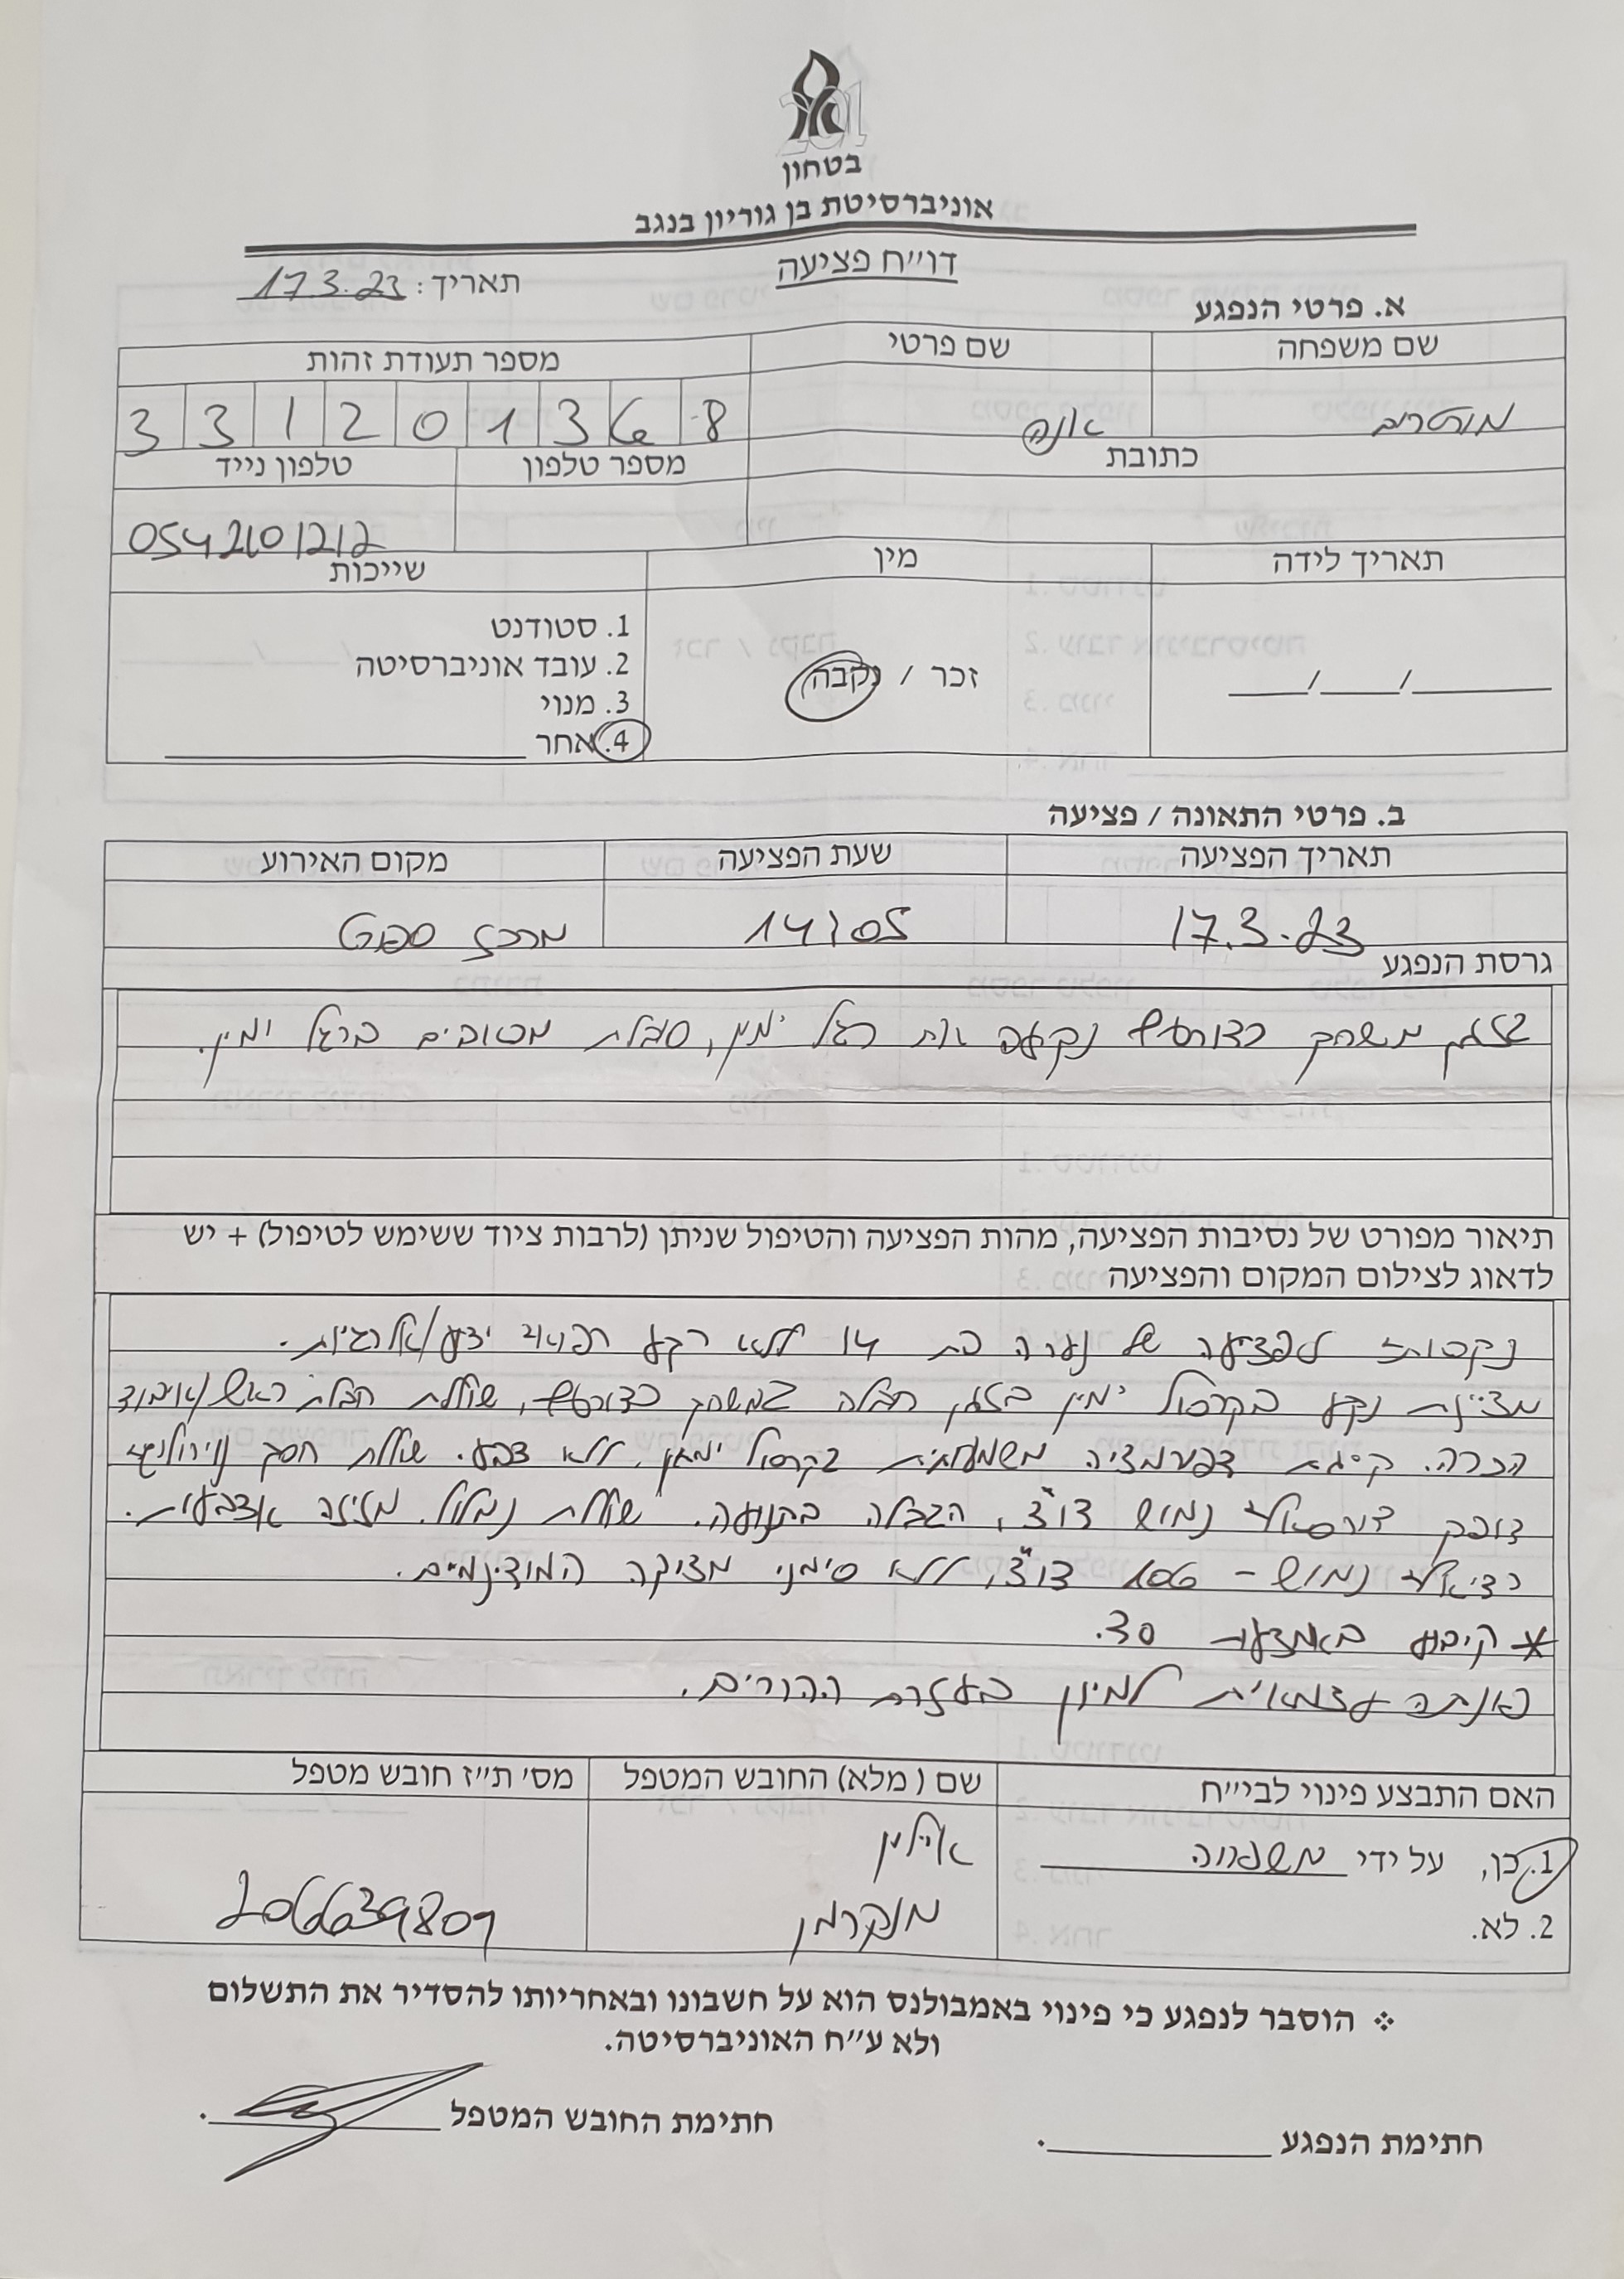 בטחון
אוניברסיטת בן גוריון בנגב
דו״ח פציעה
תאריך: 17.3.23
א. פרטי הנפגע
שם משפחה שם פרטי מספר תעודת זהות
אנה 3 3 1 2 0 1 3 6 8
כתובת מספר טלפון טלפון נייד
0542101212
תאריך לידה מין שייכות
1. סטודנט
2. עובד אוניברסיטה
___/___/___ זכר / נקבה 3. מנוי
4. אחר
ב. פרטי התאונה / פציעה
תאריך הפציעה שעת הפציעה מקום האירוע
17.3.23 14:05 מרכז ספורט
גרסת הנפגע
בזמן משחק כדורעף נקעה את רגל ימין, סובלת מכאבים ברגל ימין.
תיאור מפורט של נסיבות הפציעה, מהות הפציעה והטיפול שניתן (לרבות ציוד ששימש לטיפול) + יש
לדאוג לצילום המקום והפציעה
לפציעה של נערה בת 14 ללא רקע רפואי ידוע/אלרגיות.
מציינת נקע בקרסול ימין בזמן חבלה במשחק כדורעף, שוללת חבלת ראש/איבוד
הכרה. קיימת דפורמציה משמעותית בקרסול ימין, ללא צבע. שוללת חסך
דופק דורסאלי נמוש דו״צ, הגבלה בתנועה. שוללת נמלול. מזיזה אצבעות.
רדיאלי נמוש - 106 דו״צ, ללא סימני מצוקה המודינמיים.
* קיבוע באמצעות סד.
פונתה עצמאית למיון בעזרת ההורים.
האם התבצע פינוי לבי״ח שם (מלא) החובש המטפל מס׳ ת״ז חובש מטפל
1. כן, על ידי משפחה איילין
2. לא. מנקרמן 206639809
❖ הוסבר לנפגע כי פינוי באמבולנס הוא על חשבונו ובאחריותו להסדיר את התשלום
ולא ע״ח האוניברסיטה.
חתימת הנפגע ________. חתימת החובש המטפל ________.